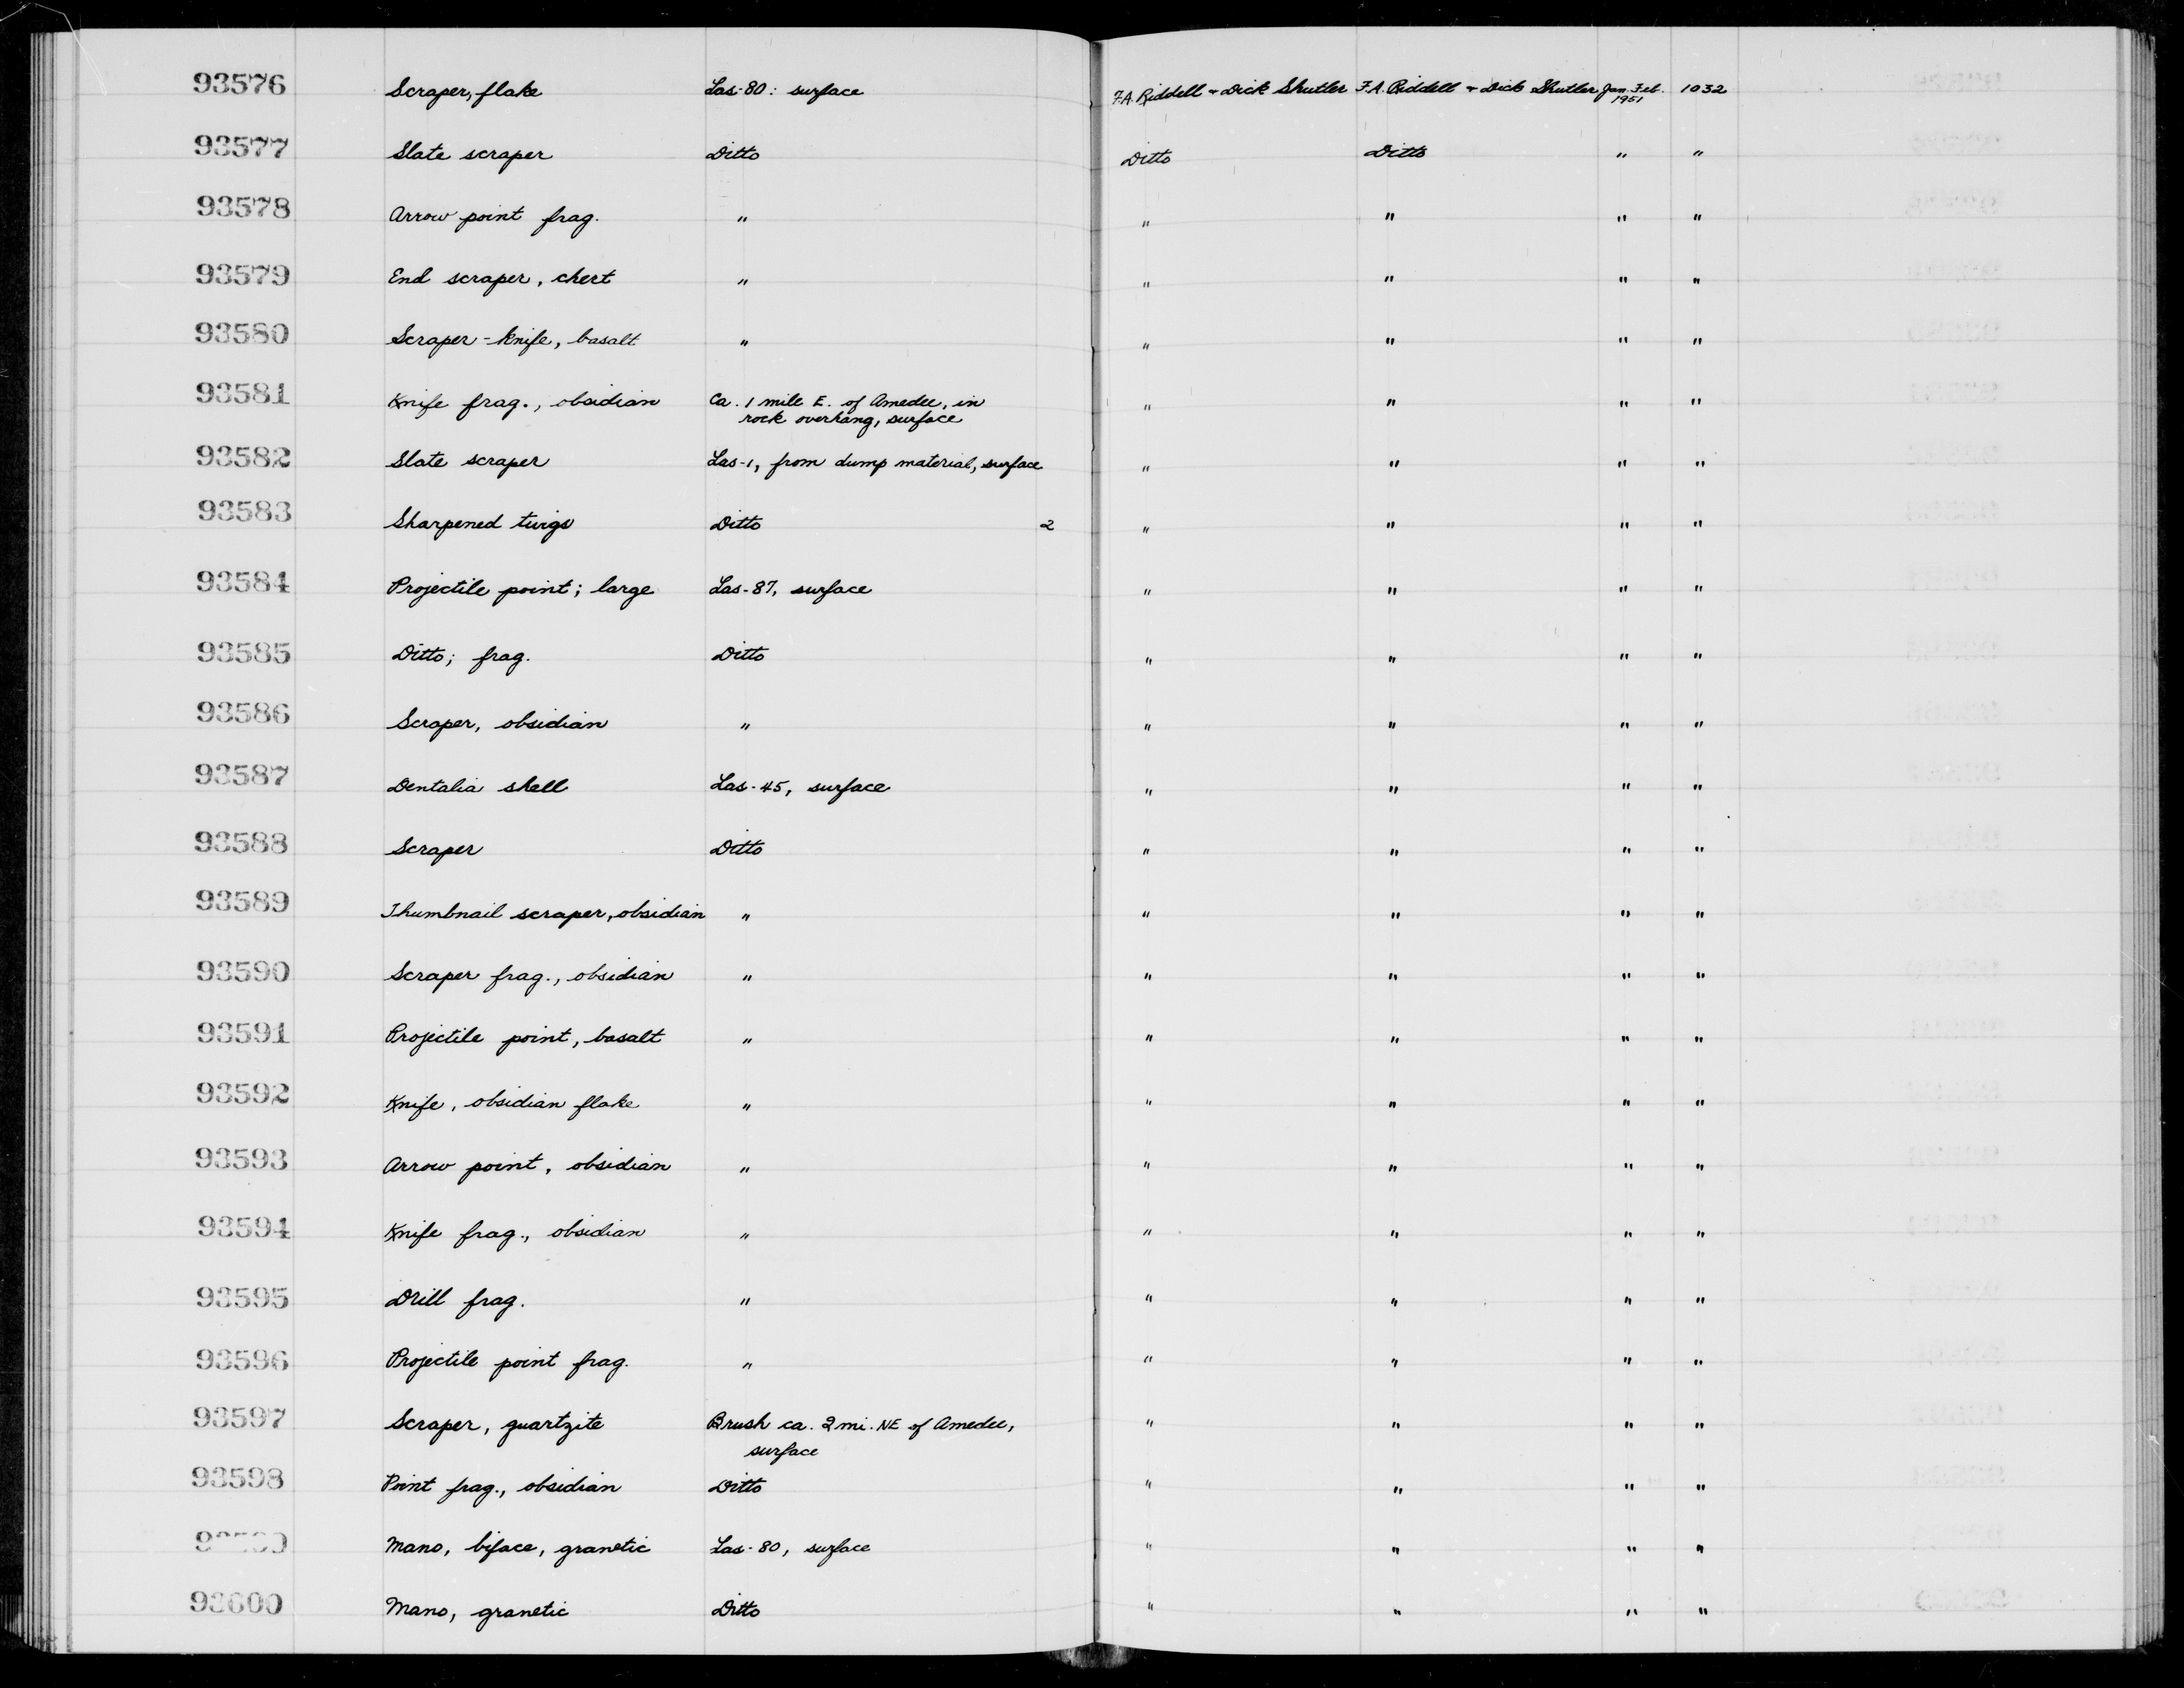 93576 Scraper, flake Las-80: surface F.A. Riddell + Dick Shutler F.A. Riddell + Dick Shutler Jan.-Feb. 1032
1951
93577 Slate scraper Ditto Ditto Ditto " "
93578 Arrow point frag. " " " " "
93579 End scraper, chert " " " " "
93580 Scraper-knife, basalt " " " " "
93581 Knife frag., obsidian Ca. 1 mile E. of Amedee, in " " " "
rock overhang, surface
93582 Slate scraper Las-1, from dump material, surface " " " "
93583 Sharpened twigs Ditto 2 " " " "
93584 Projectile point; large Las-87, surface " " " "
93585 Ditto; frag. Ditto " " " "
93586 Scraper, obsidian " " " " "
93587 Dentalia shell Las-45, surface " " " "
93588 Scraper Ditto " " " "
93589 Thumbnail scraper, obsidian " " " " "
93590 Scraper frag., obsidian " " " " "
93591 Projectile point, basalt " " " " "
93592 Knife, obsidian flake " " " " "
93593 Arrow point, obsidian " " " " "
93594 Knife frag., obsidian " " " " "
93595 Drill frag. " " " " "
93596 Projectile point frag. " " " " "
93597 Scraper, quartzite Brush ca. 2 mi. NE of Amedee, " " " "
surface
93598 Point frag., obsidian Ditto " " " "
93599 Mano, biface, granetic Las-80, surface " " " "
93600 Mano, granetic Ditto " " " "